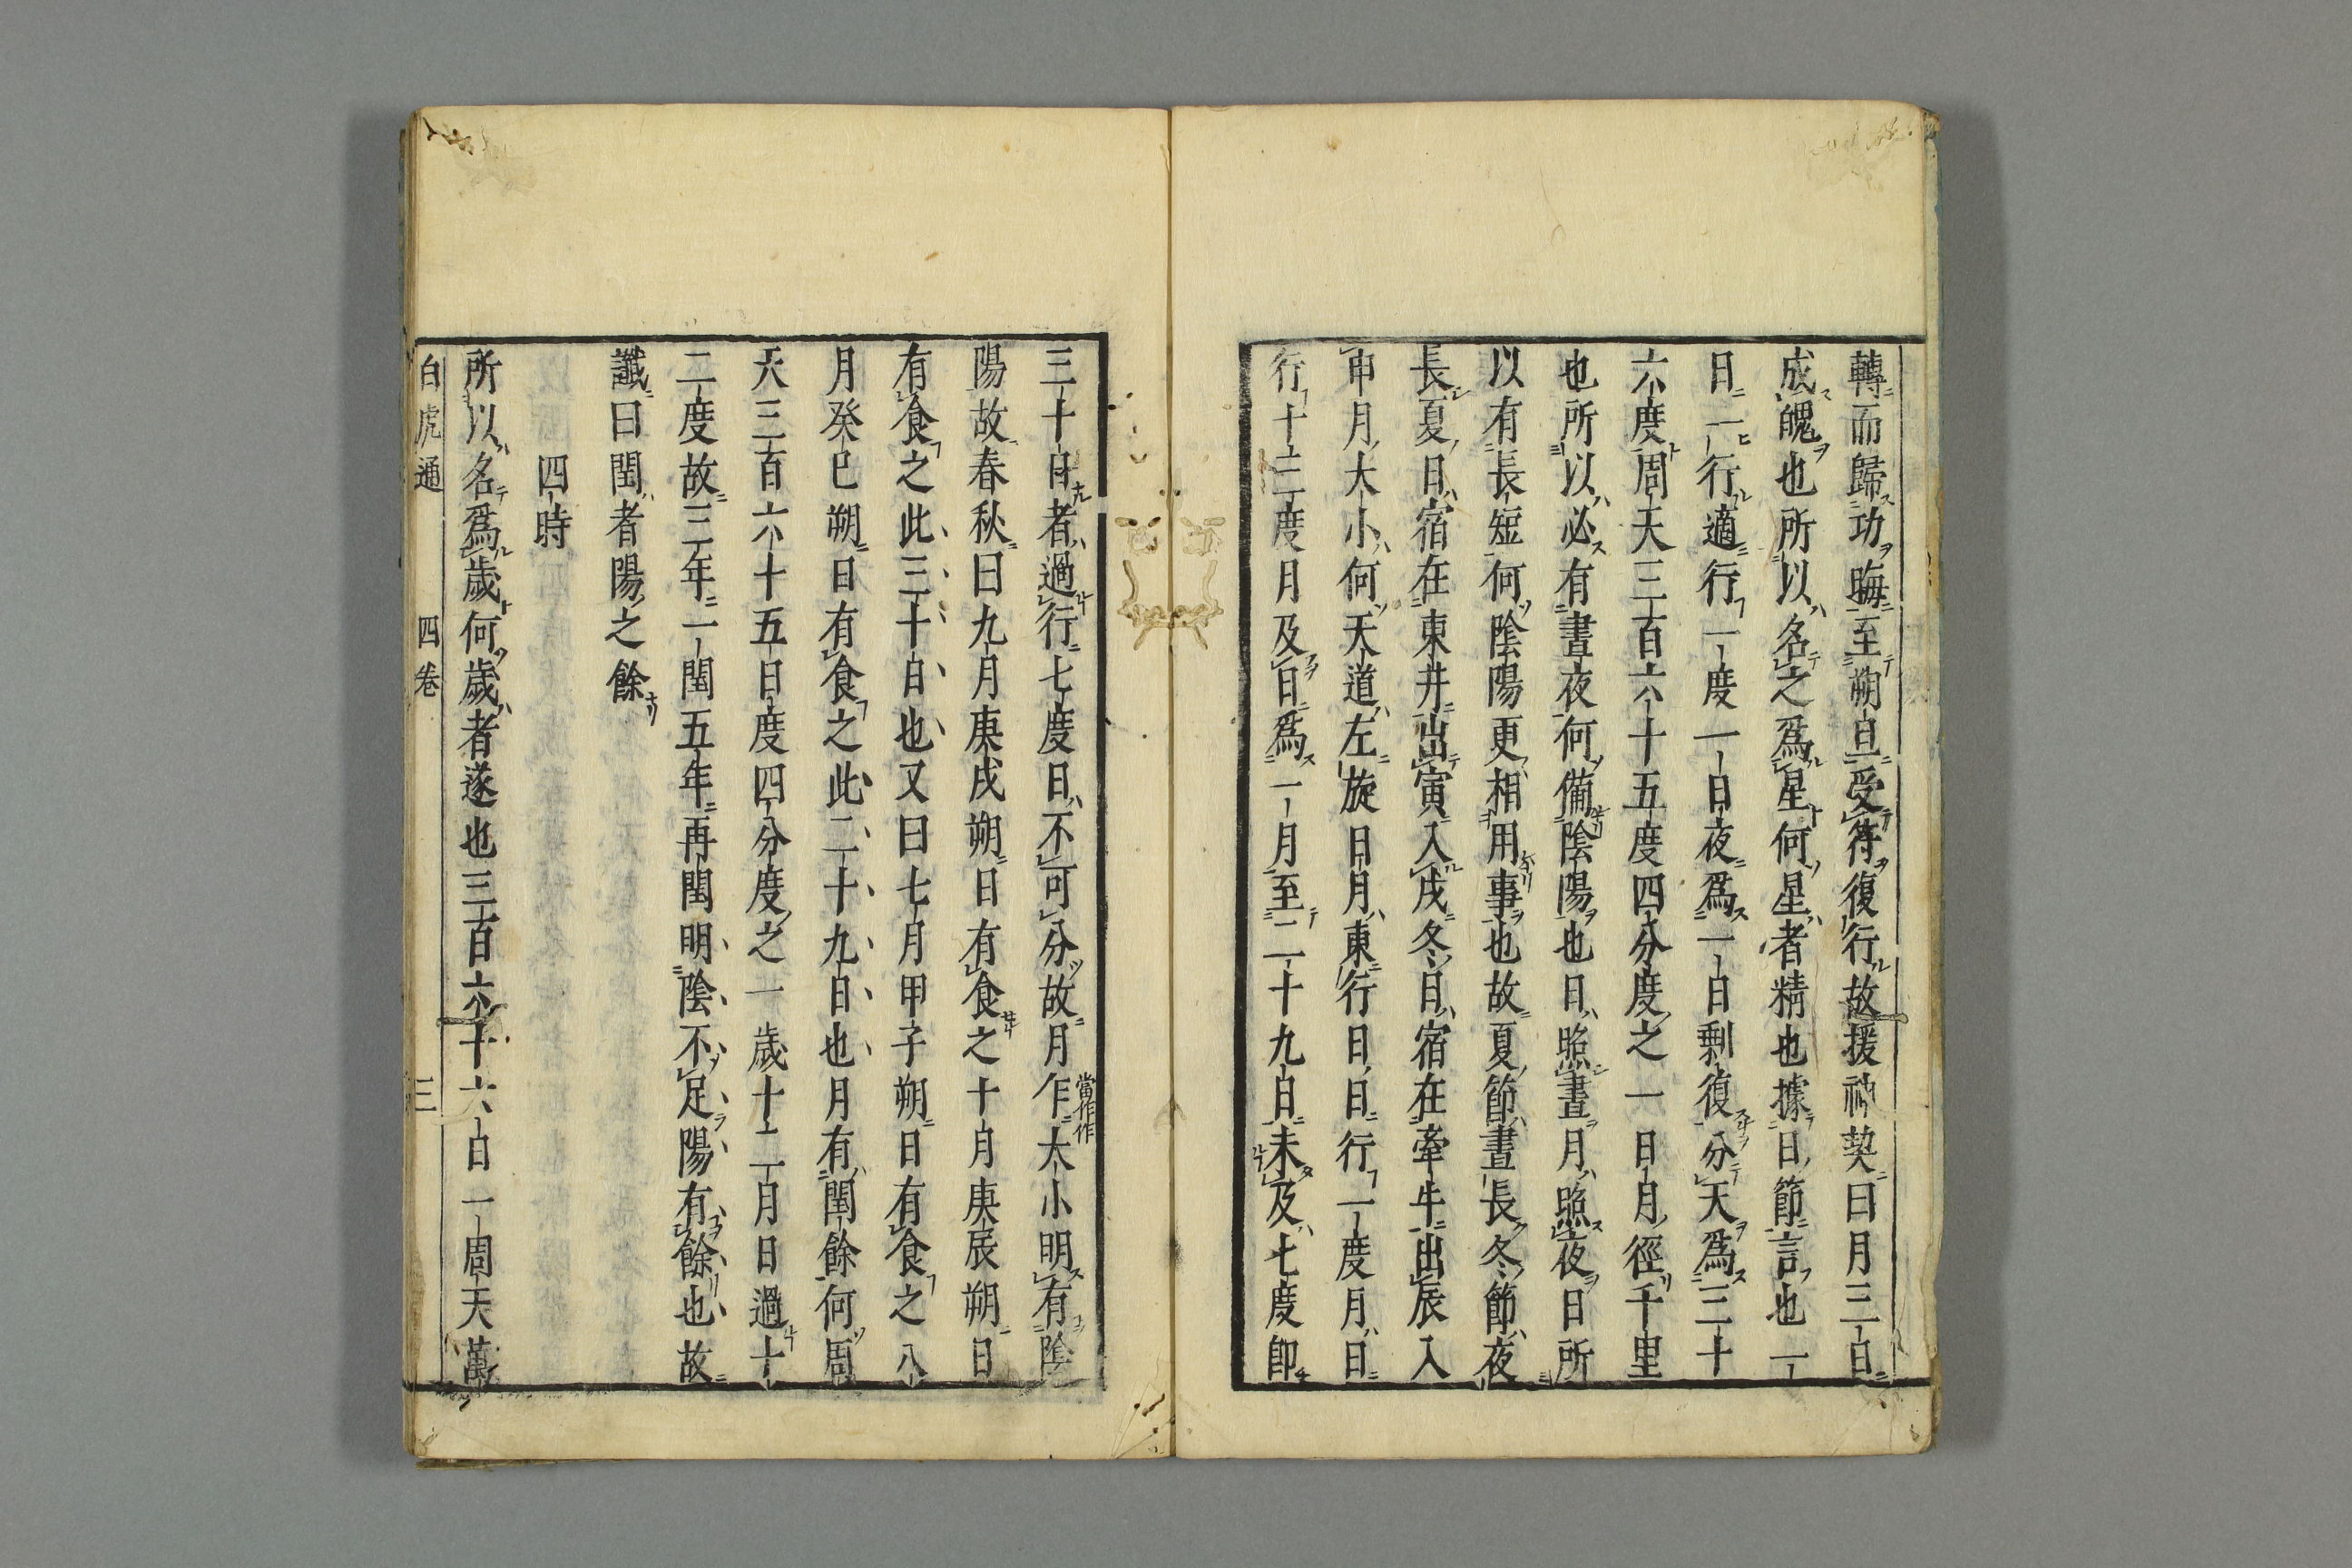 轉而歸功晦至朔旦受符復行故援神契曰月三日
成魄也所以名之爲星何星者精也據日節言也一
日一行適行一度一日夜爲一日剩復分天爲三十
六度周天三百六十五度四分度之一日月徑千里
也所以必有晝夜何備陰陽也日照晝月照夜日所
以有長短何陰陽更相用事也故夏節晝長冬節夜
長夏日宿在東井出寅入戌冬日宿在牽牛出辰入
申月大小何天道左旋日月東行日日行一度月日
行十三度月及日爲一月至二十九日未及七度即
三十日者過行七度日不可分故月乍大小明有陰
當作作
陽故春秋曰九月庚戌朔日有食之十月庚辰朔日
有食之此三十日也又曰七月甲子朔日有食之八
月癸巳朔日有食之此二十九日也月有閏餘何周
天三百六十五日度四分度之一歲十二月日過十
二度故三年一閏五年再閏明陰不足陽有餘也故
讖曰閏者陽之餘
四時
所以名爲歲何歲者遂也三百六十六日一周天萬
白虎通 四卷 三